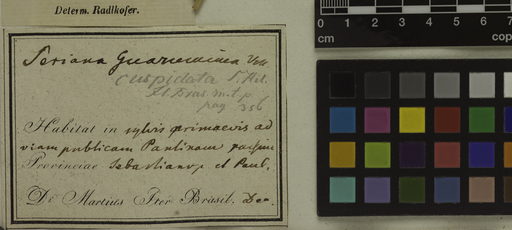 Determ. Radlkofer.
Seriana Guarumina Vell.
cuspidata St. Hil.
Fl. Bras. m. t. p.
pag 356
Habitat in sylvis primaevis ad
viam publicam Paulinam
Provinciae Sebastianop. et Paul.
Dr. Martius Iter Brasil. Dec.
0 1 2 3 4 5 6 7
cm cop